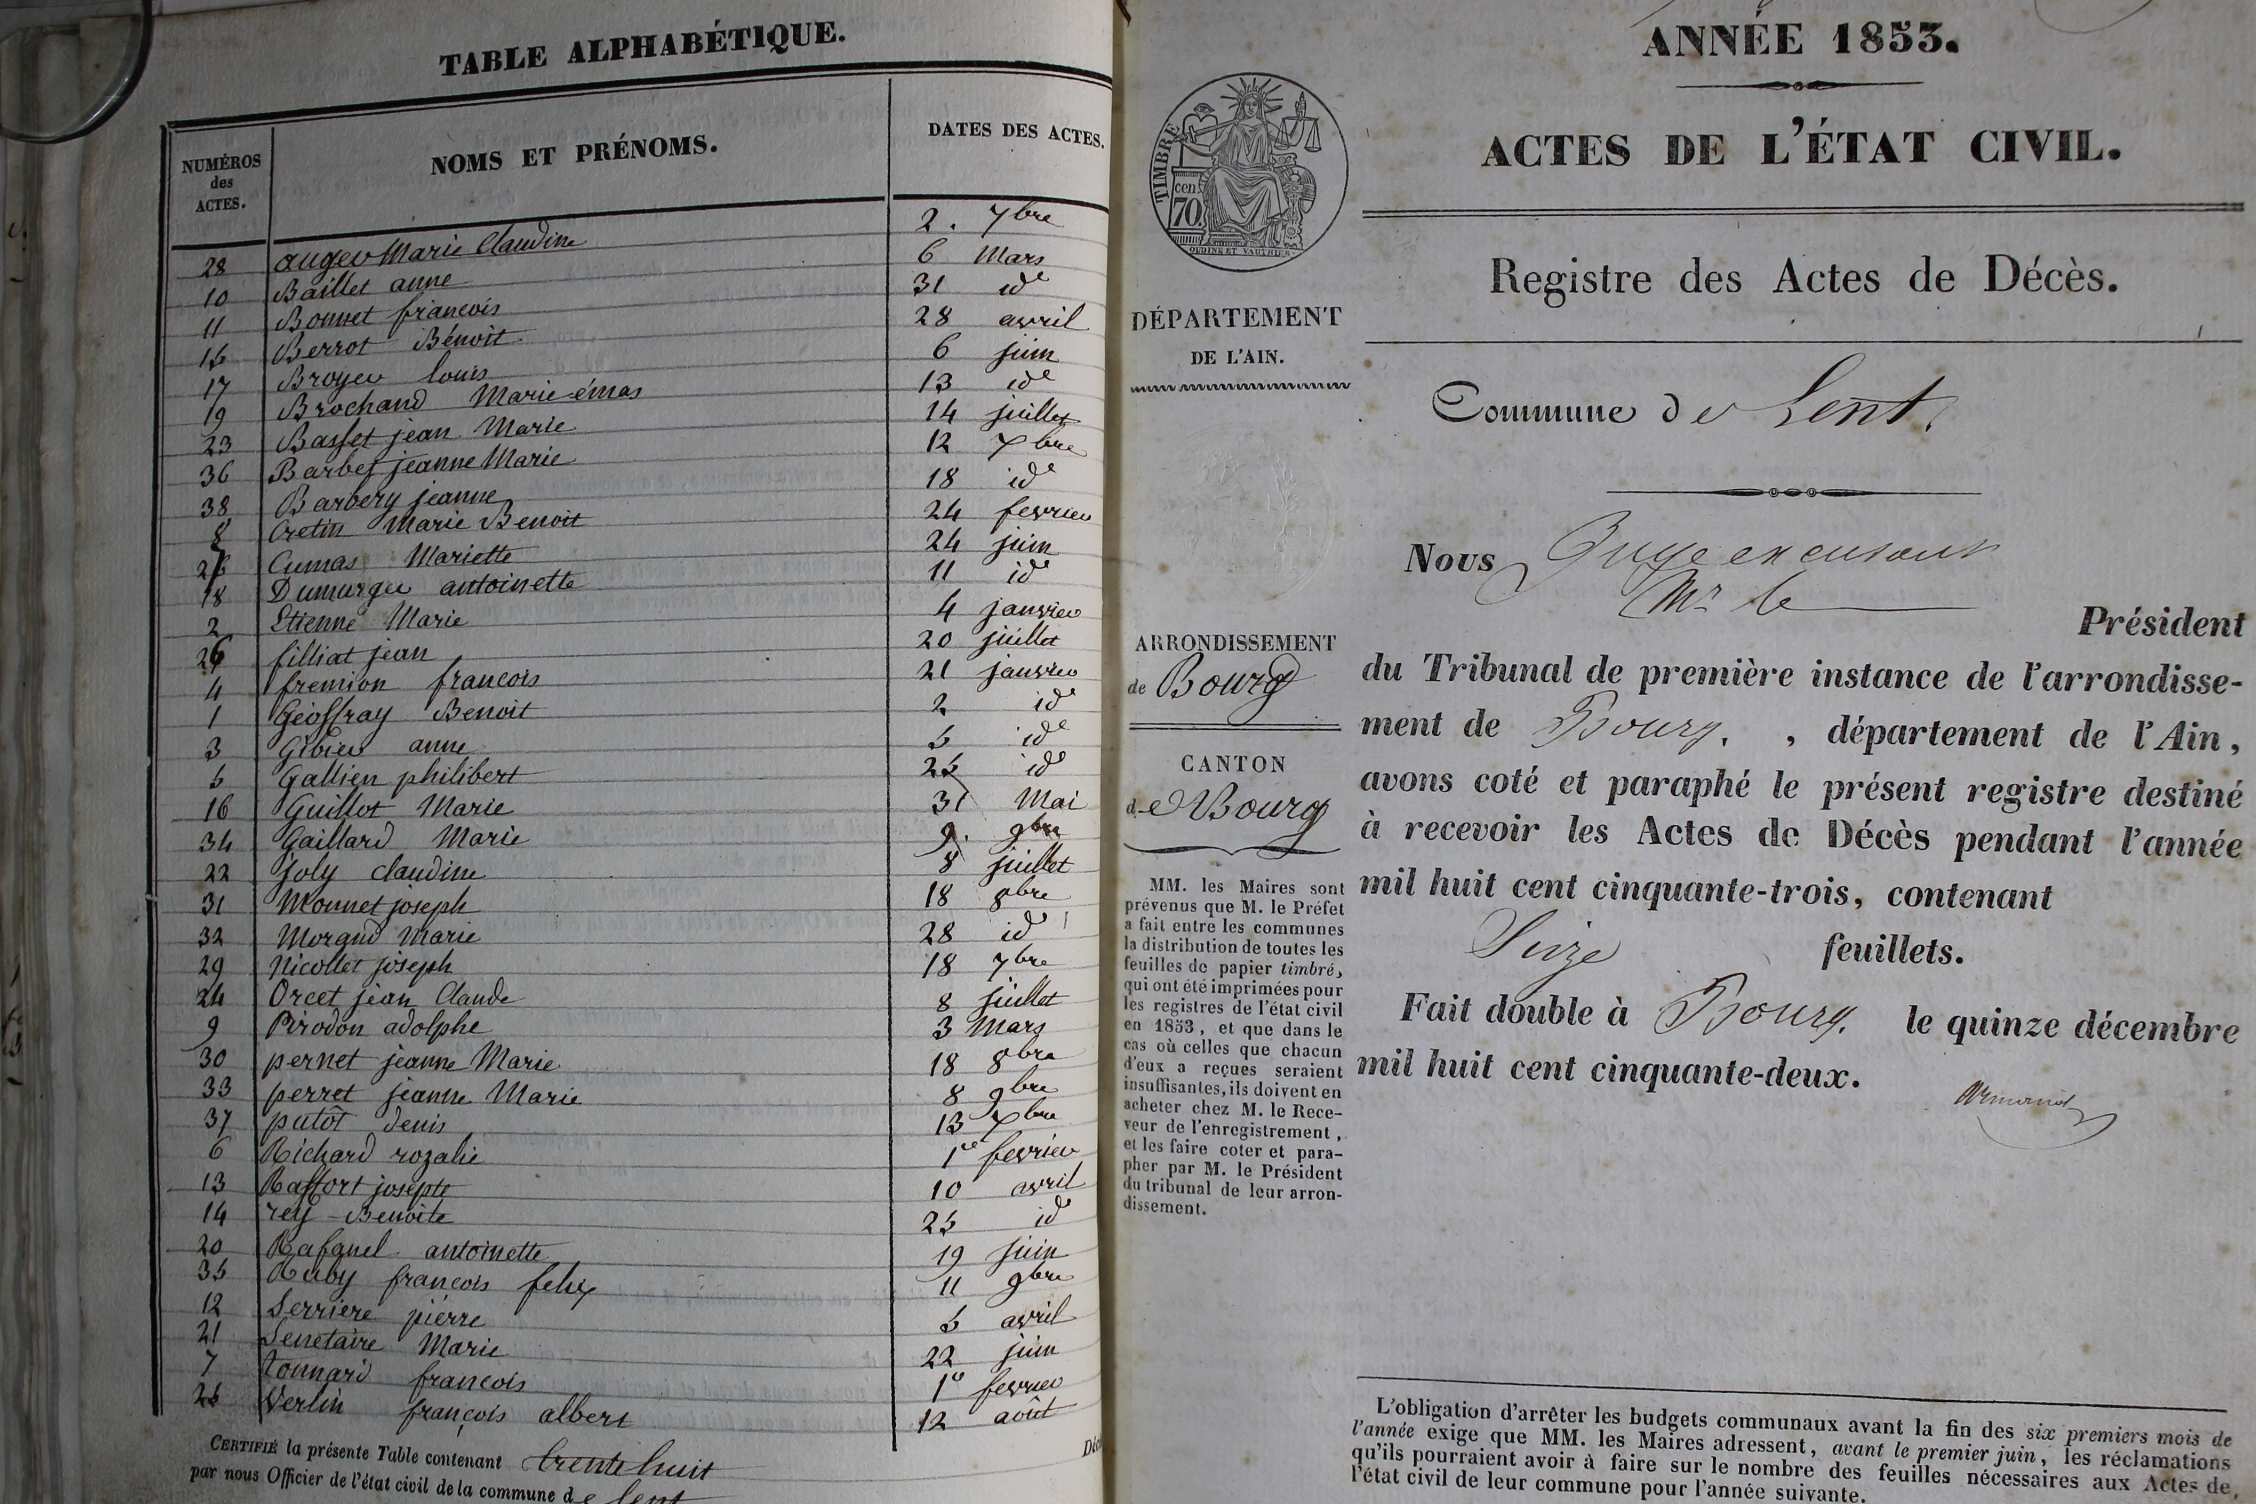 TABLE ALPHABÉTIQUE.
NUMÉROS des ACTES. NOMS ET PRÉNOMS. DATES DES ACTES.
28 auger Marie Claudine 2. 7bre
10 Baillet anne 6 Mars
11 Bonnet francois 31 ide
15 Berrot Bénoit 28 avril
17 Broyer louis 6 juin
19 Brochand Marie 13 ide
23 Basset jean Marie 14 juillet
36 Barbet jeanne Marie 12 Xbre
38 Barbery jeanne 18 ide
8 Cretin Marie Benoit 24 fevrier
Cumas Mariette 24 juin
18 antoinette 11 ide
2 Etienne Marie 4 janvier
26 filliat jean 20 juillet
4 fremion francois 21 janvier
1 Géoffray Benoit 2 ide
3 Gibier anne 5 ide
5 Gallien philibert 25 ide
16 Guillot Marie 31 Mai
34 Gaillard Marie 9. 9bre
22 joly claudine 8 juillet
31 Monnet joseph 18 8bre
32 Morand Marie 28 ide
29 Nicollet joseph 18 7bre
24 Orcet jean Claude 8 juillet
9 Pirodon adolphe 3 Mars
30 pernet jeanne Marie 18 8bre
33 perret jeanne Marie 8 9bre
37 putôt denis 13 Xbre
6 Richard rozalie 1er fevrier
13 Raffort josepte 10 avril
14 rey Benoite 25 id
20 Rafanel antoinette 19 juin
35 Ruby françois felix 11 9bre
12 Serriere pierre 5 avril
21 Senetaire Marie 22 juin
7 tonnard francois 1er fevrier
25 Verlin françois albert 12 août
CERTIFIÉ la présente Table contenant trente huit
par nous Officier de l'état civil de la commune de Lent
ANNÉE 1853.
ACTES DE L'ÉTAT CIVIL.
TIMBRE
cen
70
OUDINE ET VAUTHIER
Registre des Actes de Décès.
DÉPARTEMENT
DE L'AIN.
Commune de Lent.
Nous Juge
Mr le
Président
ARRONDISSEMENT
de Bourg
du Tribunal de première instance de l'arrondisse-
ment de Bourg. , département de l'Ain,
avons coté et paraphé le présent registre destiné
à recevoir les Actes de Décès pendant l'année
mil huit cent cinquante-trois, contenant
Seize feuillets.
Fait double à Bourg. le quinze décembre
mil huit cent cinquante-deux.
CANTON
de Bourg
MM. les Maires sont
prévenus que M. le Préfet
a fait entre les communes
la distribution de toutes les
feuilles de papier timbré,
qui ont été imprimées pour
les registres de l'état civil
en 1853, et que dans le
cas où celles que chacun
d'eux a reçues seraient
insuffisantes, ils doivent en
acheter chez M. le Rece-
veur de l'enregistrement,
et les faire coter et para-
pher par M. le Président
du tribunal de leur arron-
dissement.
L'obligation d'arrêter les budgets communaux avant la fin des six premiers mois de
l'année exige que MM. les Maires adressent, avant le premier juin, les réclamations
qu'ils pourraient avoir à faire sur le nombre des feuilles nécessaires aux Actes de
l'état civil de leur commune pour l'année suivante.